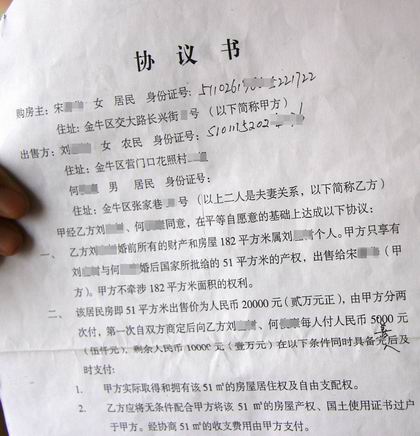 协 议 书
购房主：宋 女 居民 身份证号：
住址：金牛区交大路长兴街 号（以下简称甲方）
出售方：刘 女 农民 身份证号：
住址：金牛区营门口花照村
何 男 居民 身份证号：
住址：金牛区张家巷 号（以上二人是夫妻关系，以下简称乙方）
甲经乙方刘 、何 同意，在平等自愿意的基础上达成以下协议：
一、 乙方刘 婚前所有的财产和房屋 182 平方米属刘 个人。甲方只享有
刘 与何 婚后国家所批给的 51 平方米的产权，出售给宋 （甲
方）。甲方不牵涉 182 平方米面积的权利。
二、 该居民房即 51 平方米出售价为人民币 20000 元（贰万元正），由甲方分两
次付，第一次自双方商定后向乙方刘 、何 每人付人民币 5000 元
（伍仟元），剩余人民币 10000 元（壹万元）在以下条件同时具备 后及
时支付：
1. 甲方实际取得和拥有该 51 ㎡的房屋居住权及自由支配权。
2. 乙方应将无条件配合甲方将该 51 ㎡的房屋产权、国土使用证书过户
于甲方。经协商 51 ㎡的收支费用由甲方支付。